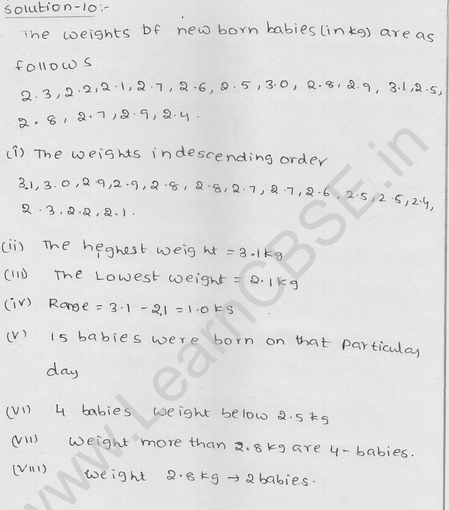 Solution-10:-
The weights of new born babies (in kg) are as
follows
2.3, 2.2, 2.1, 2.7, 2.6, 2.5, 3.0, 2.8, 2.9, 3.1, 2.5,
2.8, 2.7, 2.9, 2.4.
(i) The weights in descending order
3.1, 3.0, 2.9, 2.9, 2.8, 2.8, 2.7, 2.7, 2.6, 2.5, 2.5, 2.4,
2.3, 2.2, 2.1.
(ii) The heghest weight = 3.1kg.
(iii) The Lowest weight = 2.1kg
(iv) Range = 3.1 - 2.1 = 1.0 kg
(V) 15 babies were born on that particular
day
(VI) 4 babies weight below 2.5 kg
(VII) weight more than 2.8 kg are 4-babies.
(VIII) weight 2.8 kg → 2 babies.
www.LearnCBSE.in